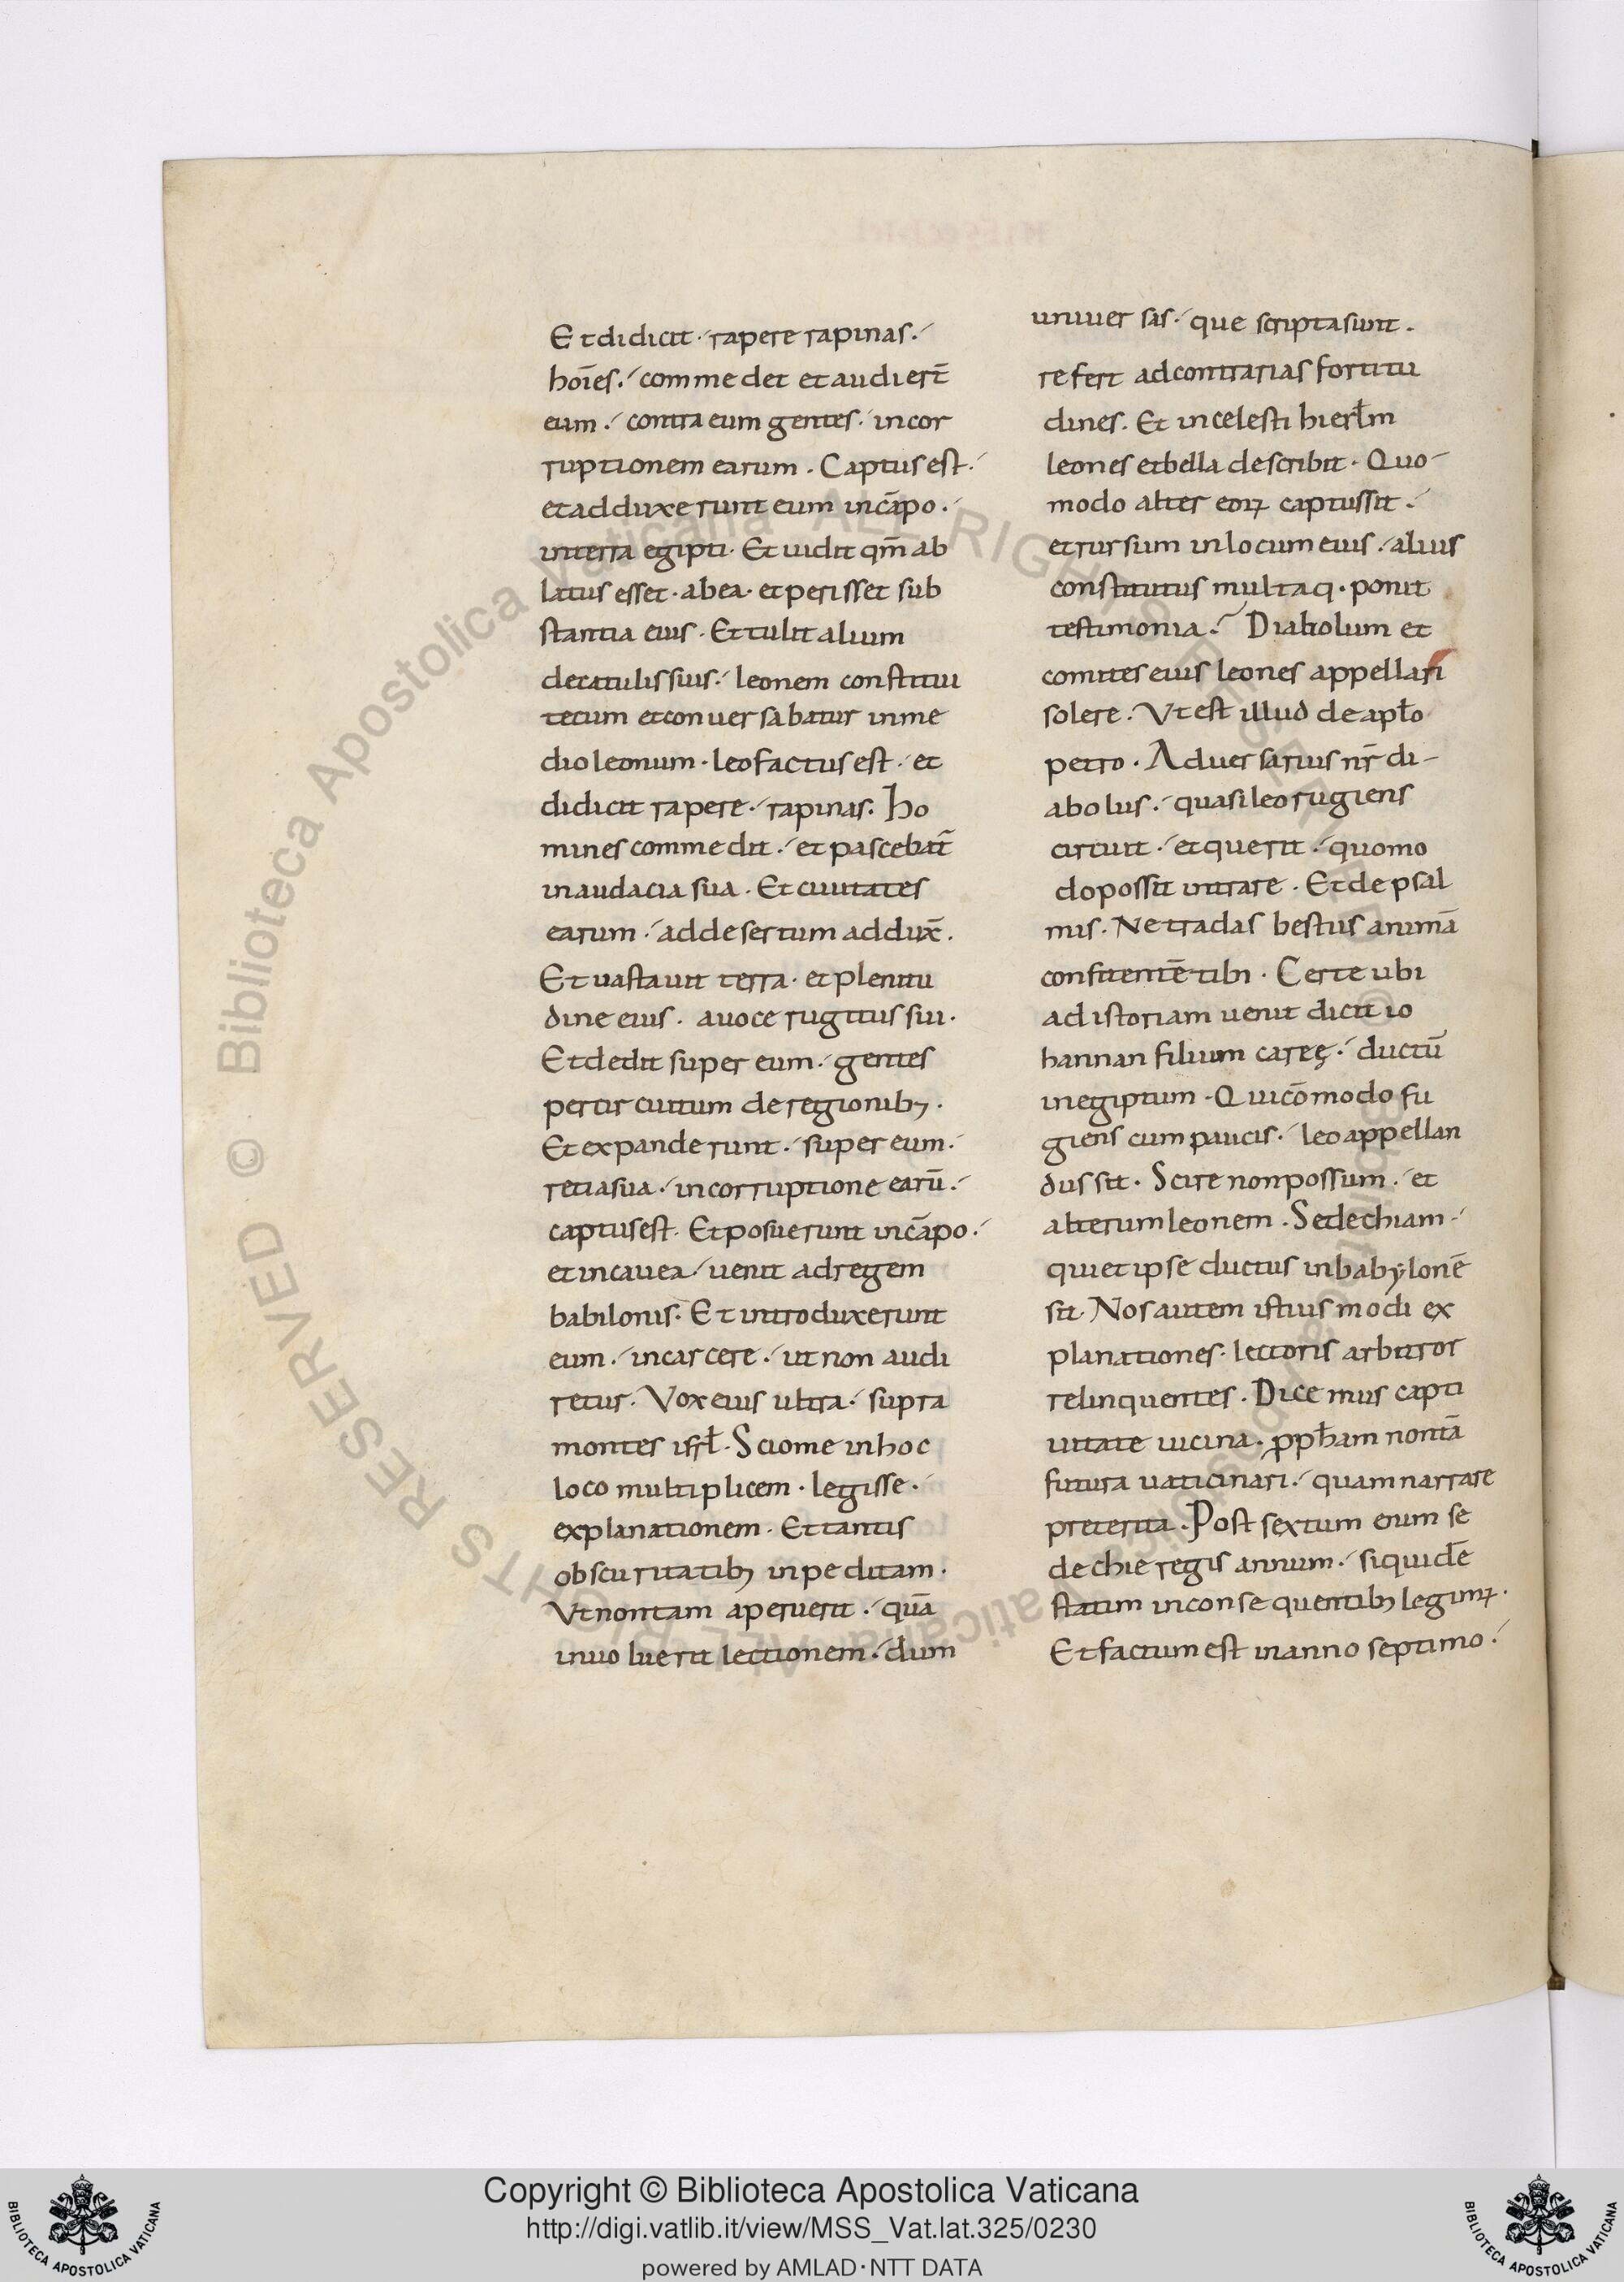 Et didicit · rapere rapinas ·
hoīes · commedet et audiert̄
eum · contra eum gentes · incor
ruptionem earum · Captus est ·
et adduxerunt eum in cāpo ·
in terra egipti · Et uidit qm̄ ab
latus esset · ab ea · et perisset sub
stantia eius · Et tulit alium
de catulis suis · leonem constitui
tecum et conuersabatur in me
dio leonum · leo factus est · et
didicit rapere · rapinas · Ho
mines commedit · et pascebat̄
in audacia sua · Et ciuitates
earum · ad desertum addux̄ ·
Et uastauit terra · et plenitu
dine eius · a uoce rugitus sui ·
Et dedit super eum · gentes
per circuitum de regionibꝫ ·
Et expanderunt · super eum ·
retia sua · in corruptione earū ·
captus est · Et posuerunt in cāpo ·
et in cauea · uenit ad regem
babilonis · Et introduxerunt
eum · in carcere · ut non audi
retur · Vox eius ultra · supra
montes isrł · Scio me in hoc
loco multiplicem · legisse ·
explanationem · Et tantis
obscuritatibꝫ inpeditam ·
Vt non tam aperuerit · quā
inuoluerit lectionem · dum
uniuersas · que scripta sunt ·
refert ad contrarias fortitu
dines · Et in celesti hierłm
leones et bella describit · Quo-
modo alter eoꝝ captus sit ·
et rursum in locum eius · alius
constitutus multaq · ponit
testimonia · Diabolum et
comites eius leones appellari
solere · Vt est illud de apło
petro · Aduersarius nr̄ di-
abolus · quasi leo rugiens
circuit · et querit · quomo
do possit intrare · Et de psal
mis · Ne tradas bestiis animā
confitentē tibi · Certe ubi
ad istoriam uenit dicit io
hannan filium careę · ductū
in egiptum · Qui cōmodo fu
giens cum paucis · leo appellan
dus sit · Scire non possum · et
alterum leonem · Sedechiam ·
qui et ipse ductus in babylonē
sit · Nos autem istius modi ex
planationes · lectoris arbitror
relinquentes · Dicemus capti
uitate uicina · ꝓpħam non tā
futura uaticinari · quam narrare
preterita · Post sextum enim se
dechie regis annum · siquidē
statim in consequentibꝫ legimꝝ ·
Et factum est in anno septimo ·
Copyright © Biblioteca Apostolica Vaticana
http://digi.vatlib.it/view/MSS_Vat.lat.325/0230
powered by AMLAD·NTT DATA